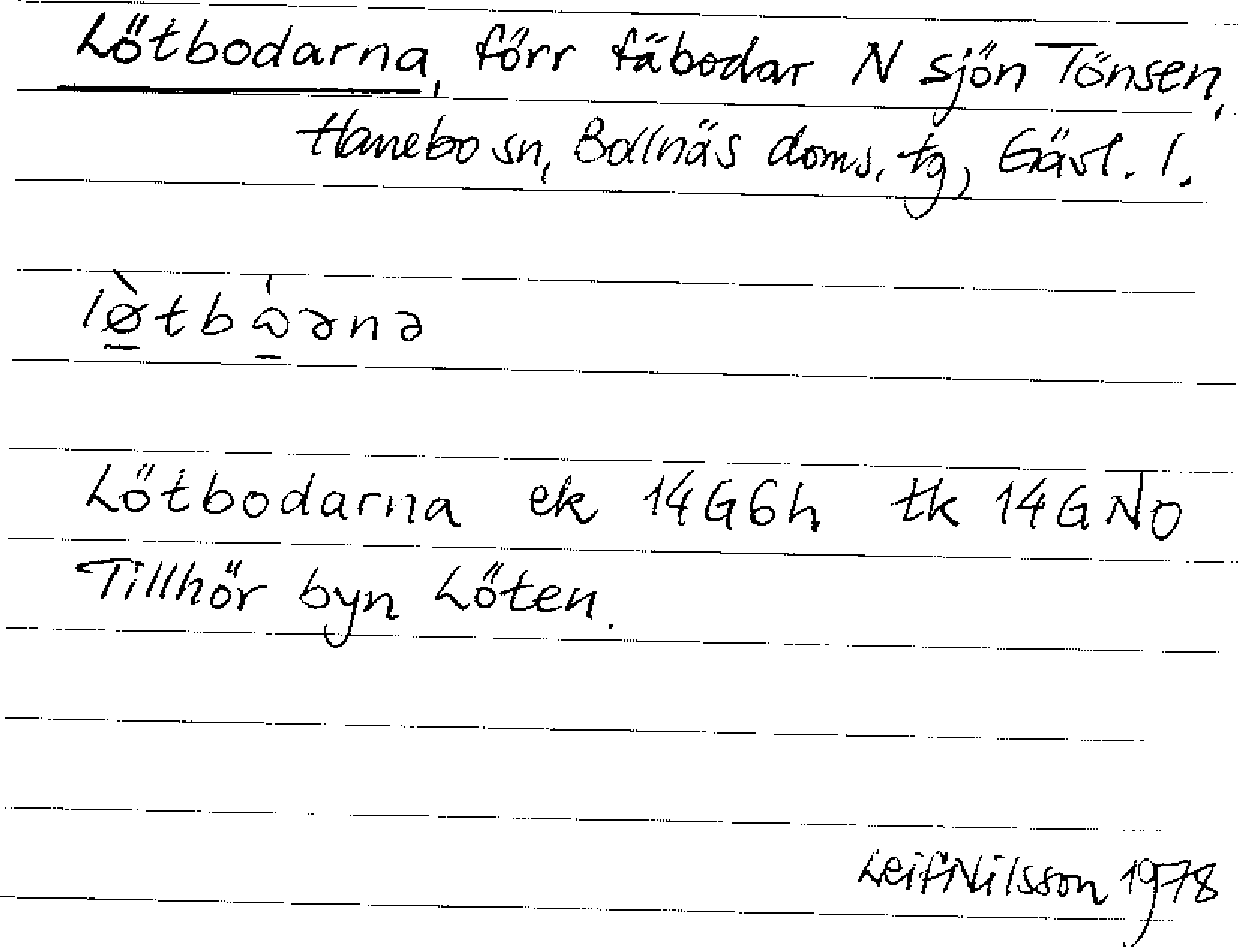 Lötbodarna, förr fäbodar N sjön Tönsen,
Hanebo sn, Bollnäs doms. tg, Gävl. l.
lø̀tbὼərnə
Lötbodarna ek 14G6h tk 14GNO
Tillhör byn Löten.
Leif Nilsson 1978